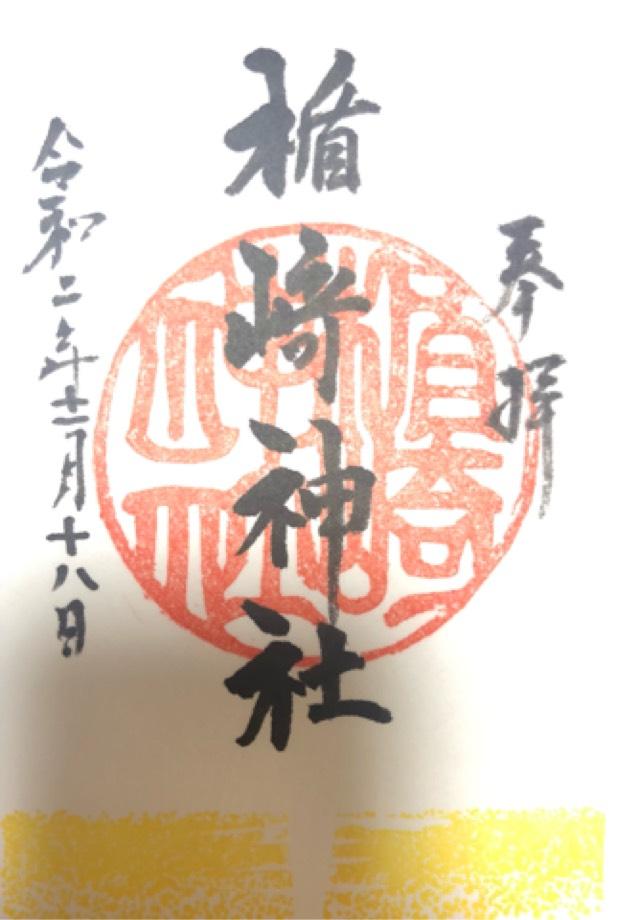 奉拝
楯崎神社
令和二年十二月十八日